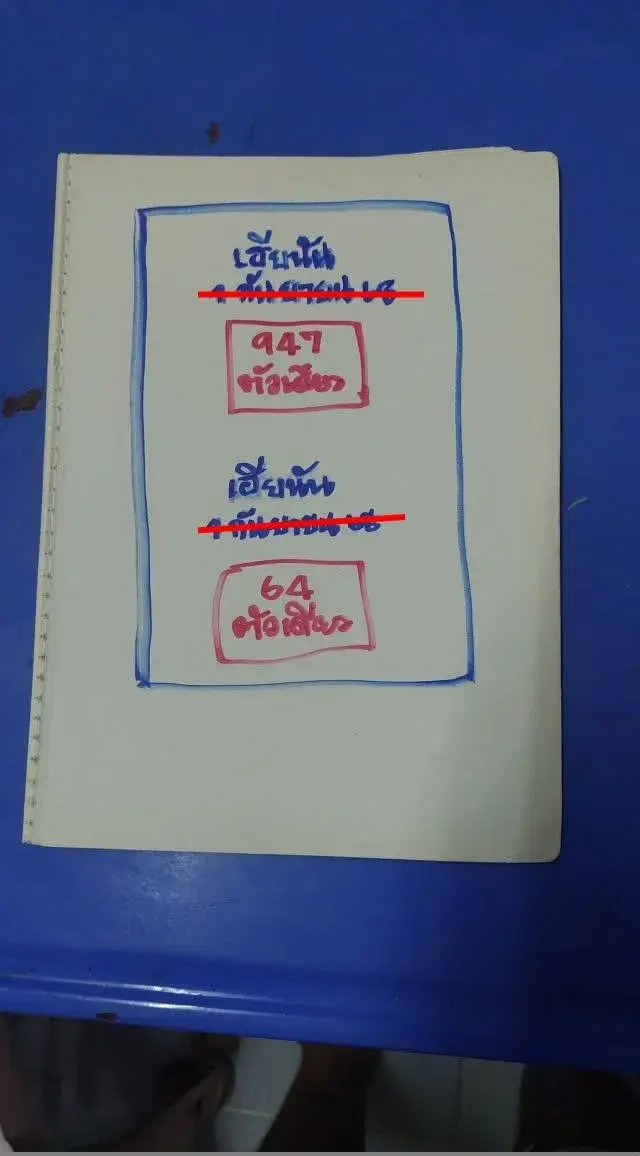 เฮียนัน
947
ตัวเดียว
เฮียนัน
64
ตัวเดียว